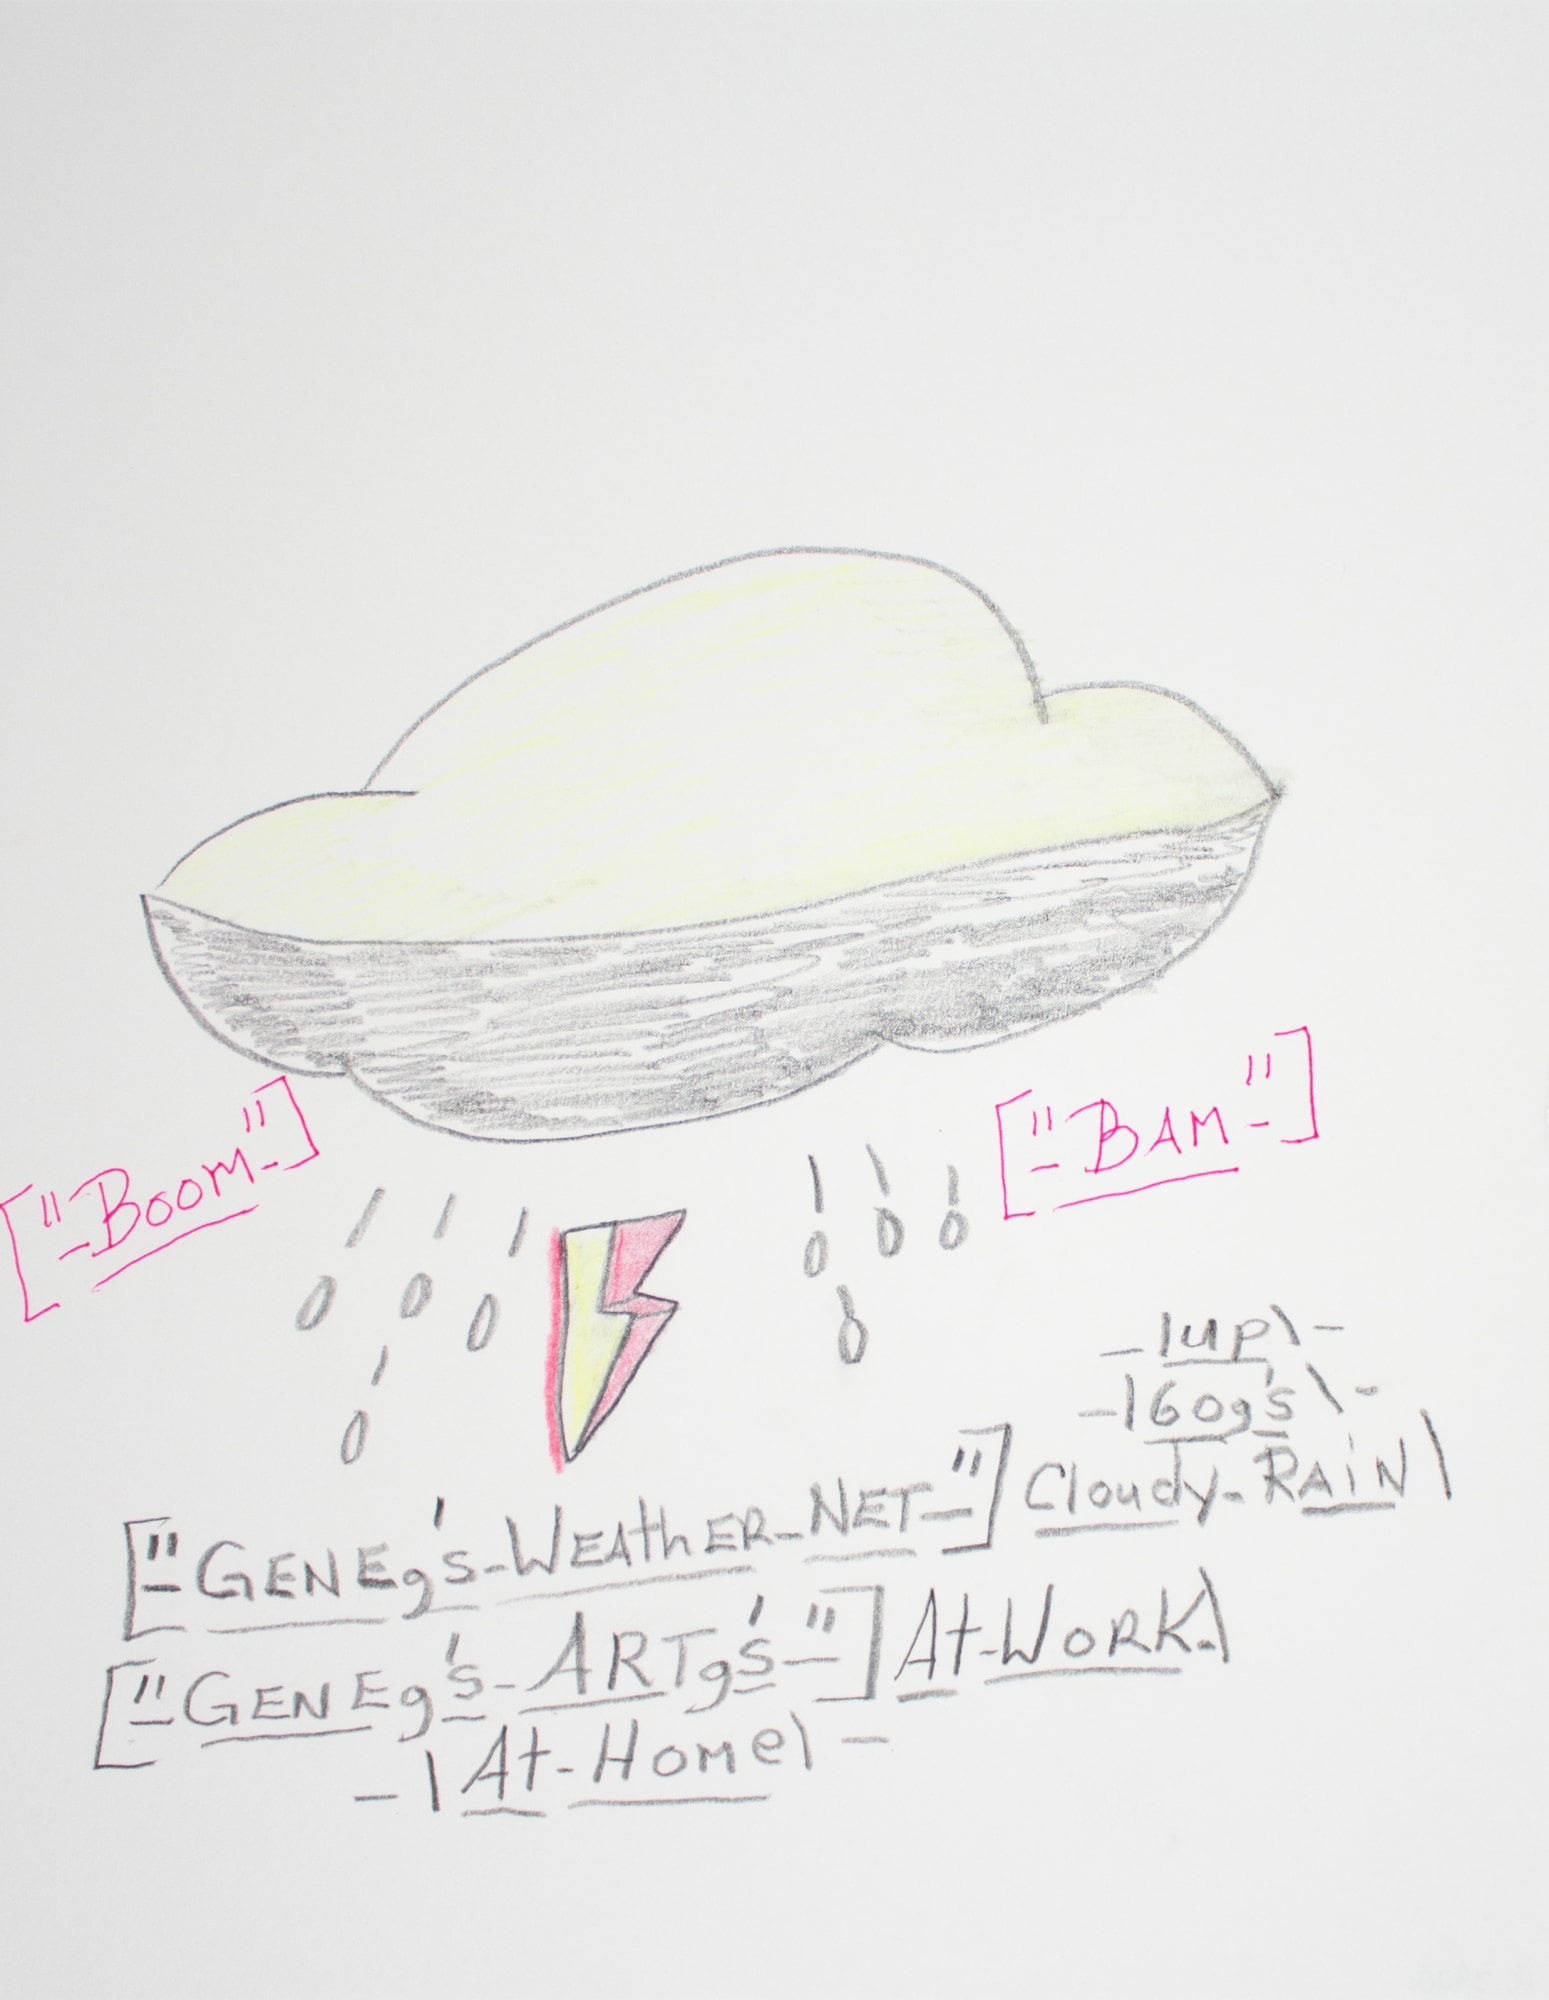 ["-Boom-"]
["-BAM-"]
-|up\-
-|60g's\-
["-GENEg's-WEAthER-NET-"] Cloudy-RAiN\
["-GENEg's-ARTg's-"] At-WORK.\
-|At-Home\-